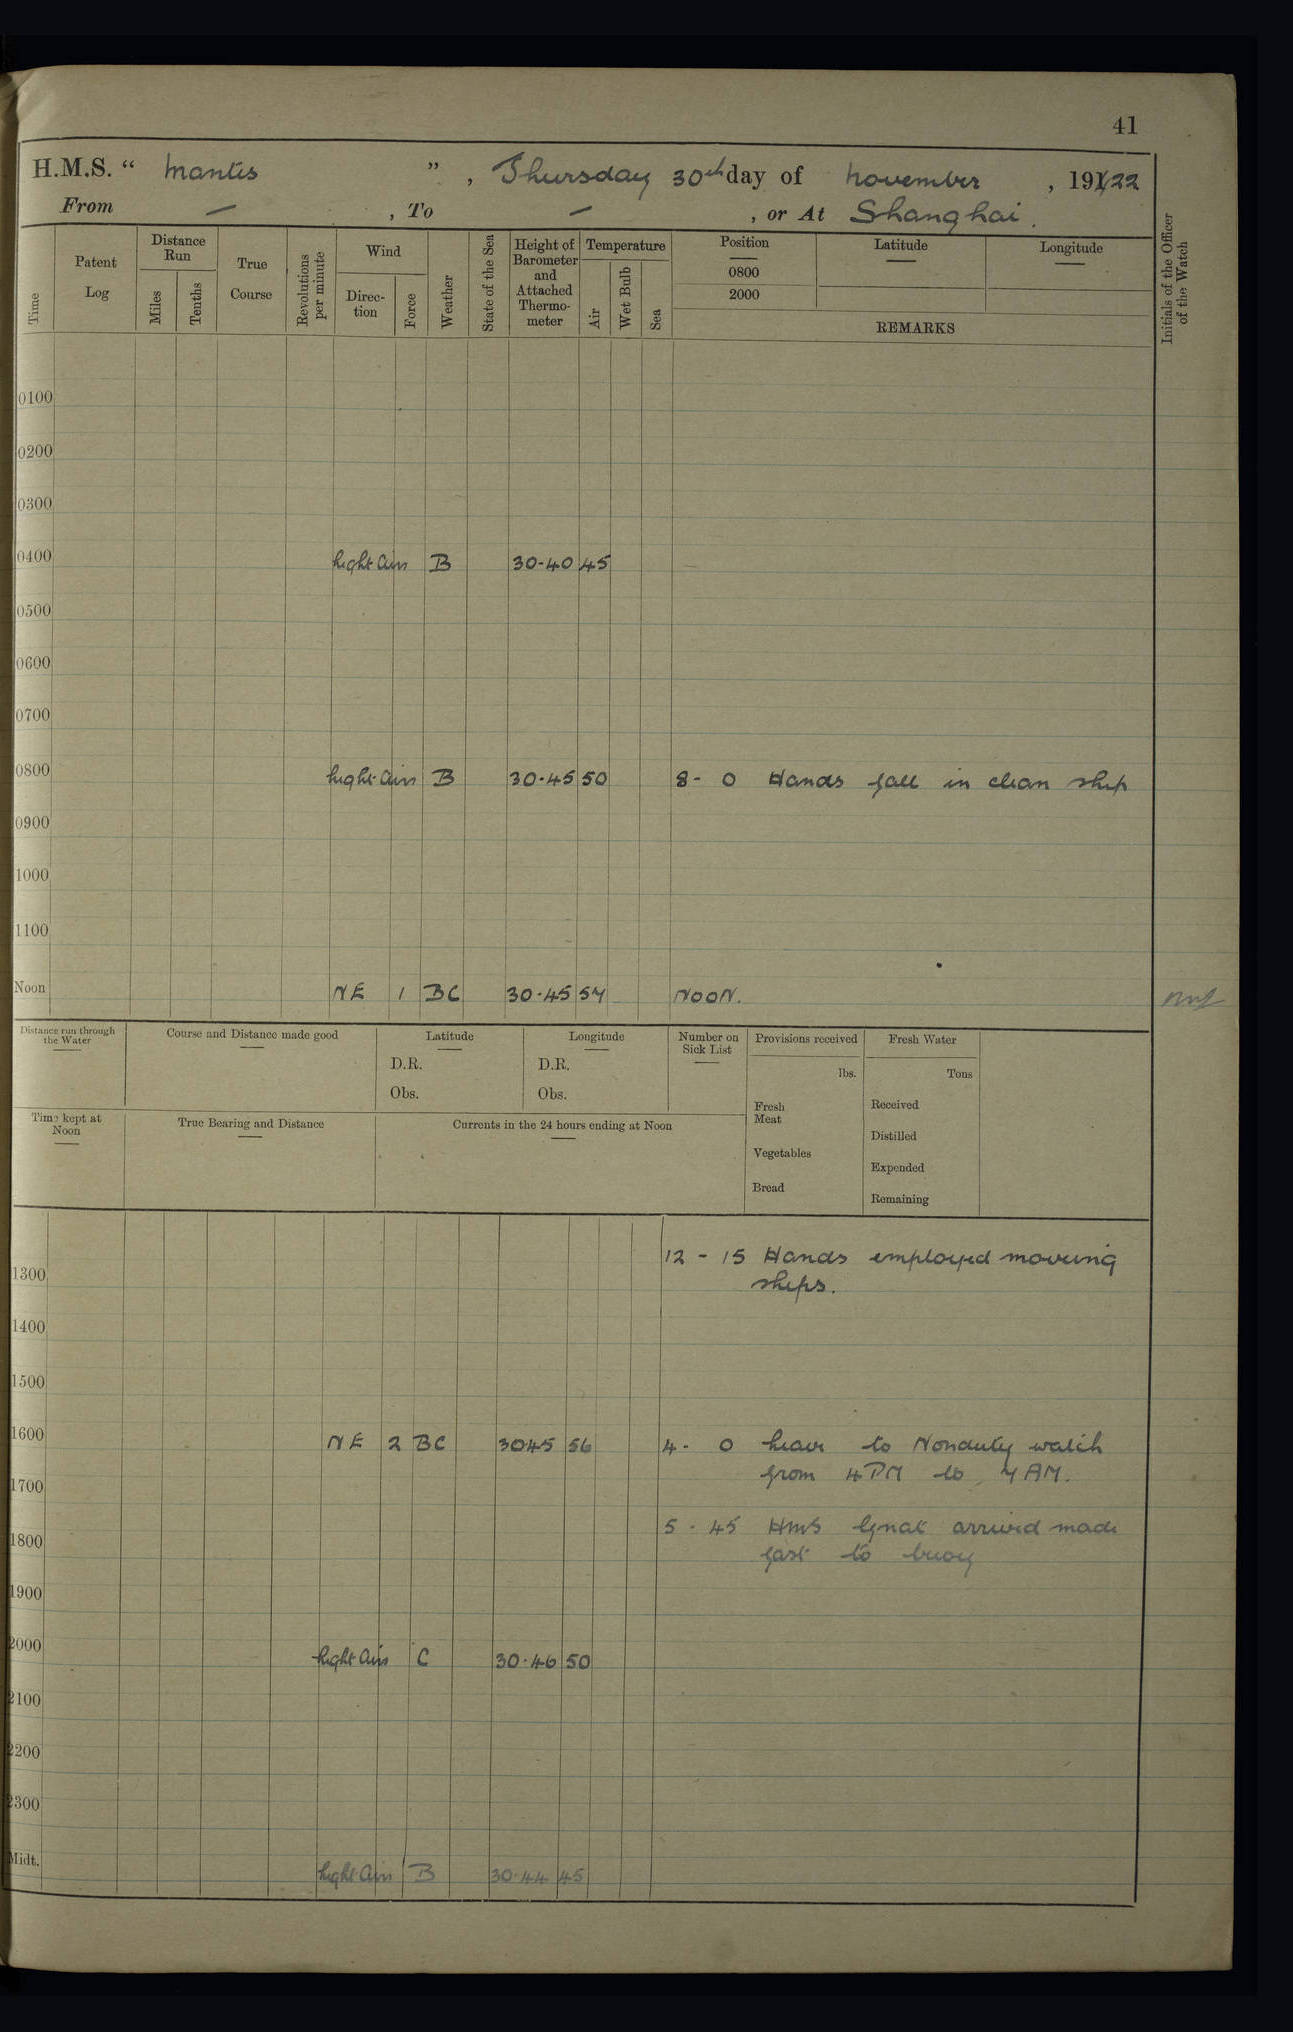 41
H.M.S. " Mantis ", Thursday 30th day of November, 1922
From — , To — , or At Shanghai.
Time
Patent Log
Distance Run
Miles
Tenths
True Course
Revolutions per minute
Wind
Direction
Force
Weather
State of the Sea
Height of Barometer and Attached Thermometer
Temperature
Air
Wet Bulb
Sea
Position
0800
2000
Latitude
Longitude
REMARKS
Initials of the Officer of the Watch
0100
0200
0300
0400 Light Airs B 30-40 45
0500
0600
0700
0800 Light Airs B 30.45 50 8 - 0 Hands fall in clean ship
0900
1000
1100
Noon NE 1 BC 30.45 57 NOON.
Distance run through the Water
Course and Distance made good
Latitude
D.R.
Obs.
Longitude
D.R.
Obs.
Number on Sick List
Provisions received
lbs.
Fresh Meat
Vegetables
Bread
Fresh Water
Tons
Received
Distilled
Expended
Remaining
Time kept at Noon
True Bearing and Distance
Currents in the 24 hours ending at Noon
12 - 15 Hands employed moving
1300 ships.
1400
1500
1600 NE 2 BC 3045 56 4 - 0 Leave to Nonduty watch
from 4 PM to 7 AM.
1700
5 - 45 HMS Gnat arrived made
1800 fast to buoy
1900
2000 Light Airs C 30.46 50
2100
2200
2300
Midt. Light Airs B 30.44 45